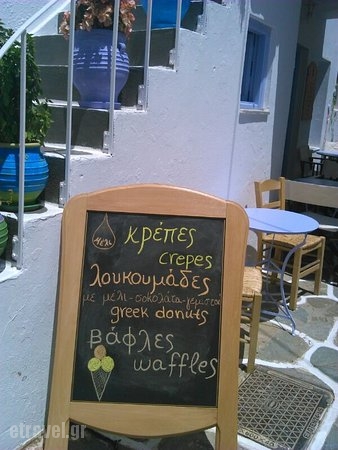 Μέλι
κρέπες
crepes
λουκουμάδες
με μέλι-σοκολάτα-γεμιστοί
greek donuts
βάφλες
waffles
etravel.gr